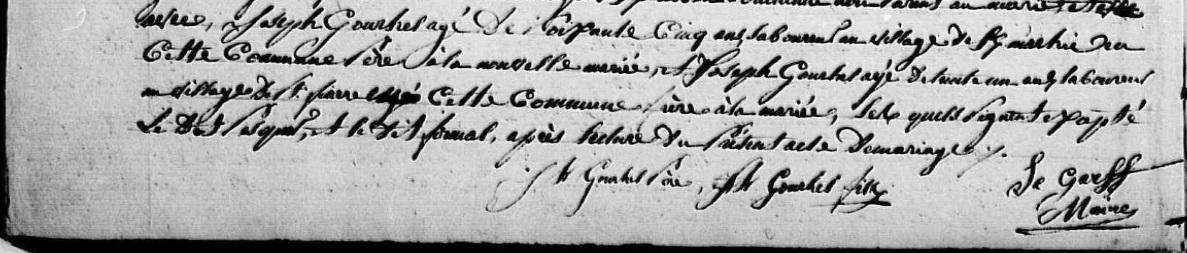 non parent au marié et
Joseph Gourhel agé de soixante cinq ans laboureur au village de
Cette Commune père à la nouvelle mariée, et Joseph Gourhel agé de trente un ans laboureur
au village de St. pierre Cette Commune frère à la mariée, les quels signent excepté
Le Dit et le dit formal, après lecture du présent acte De mariage ./.
Jh Gourhel père, Jh Gourhel fils
Le Garff
Maire